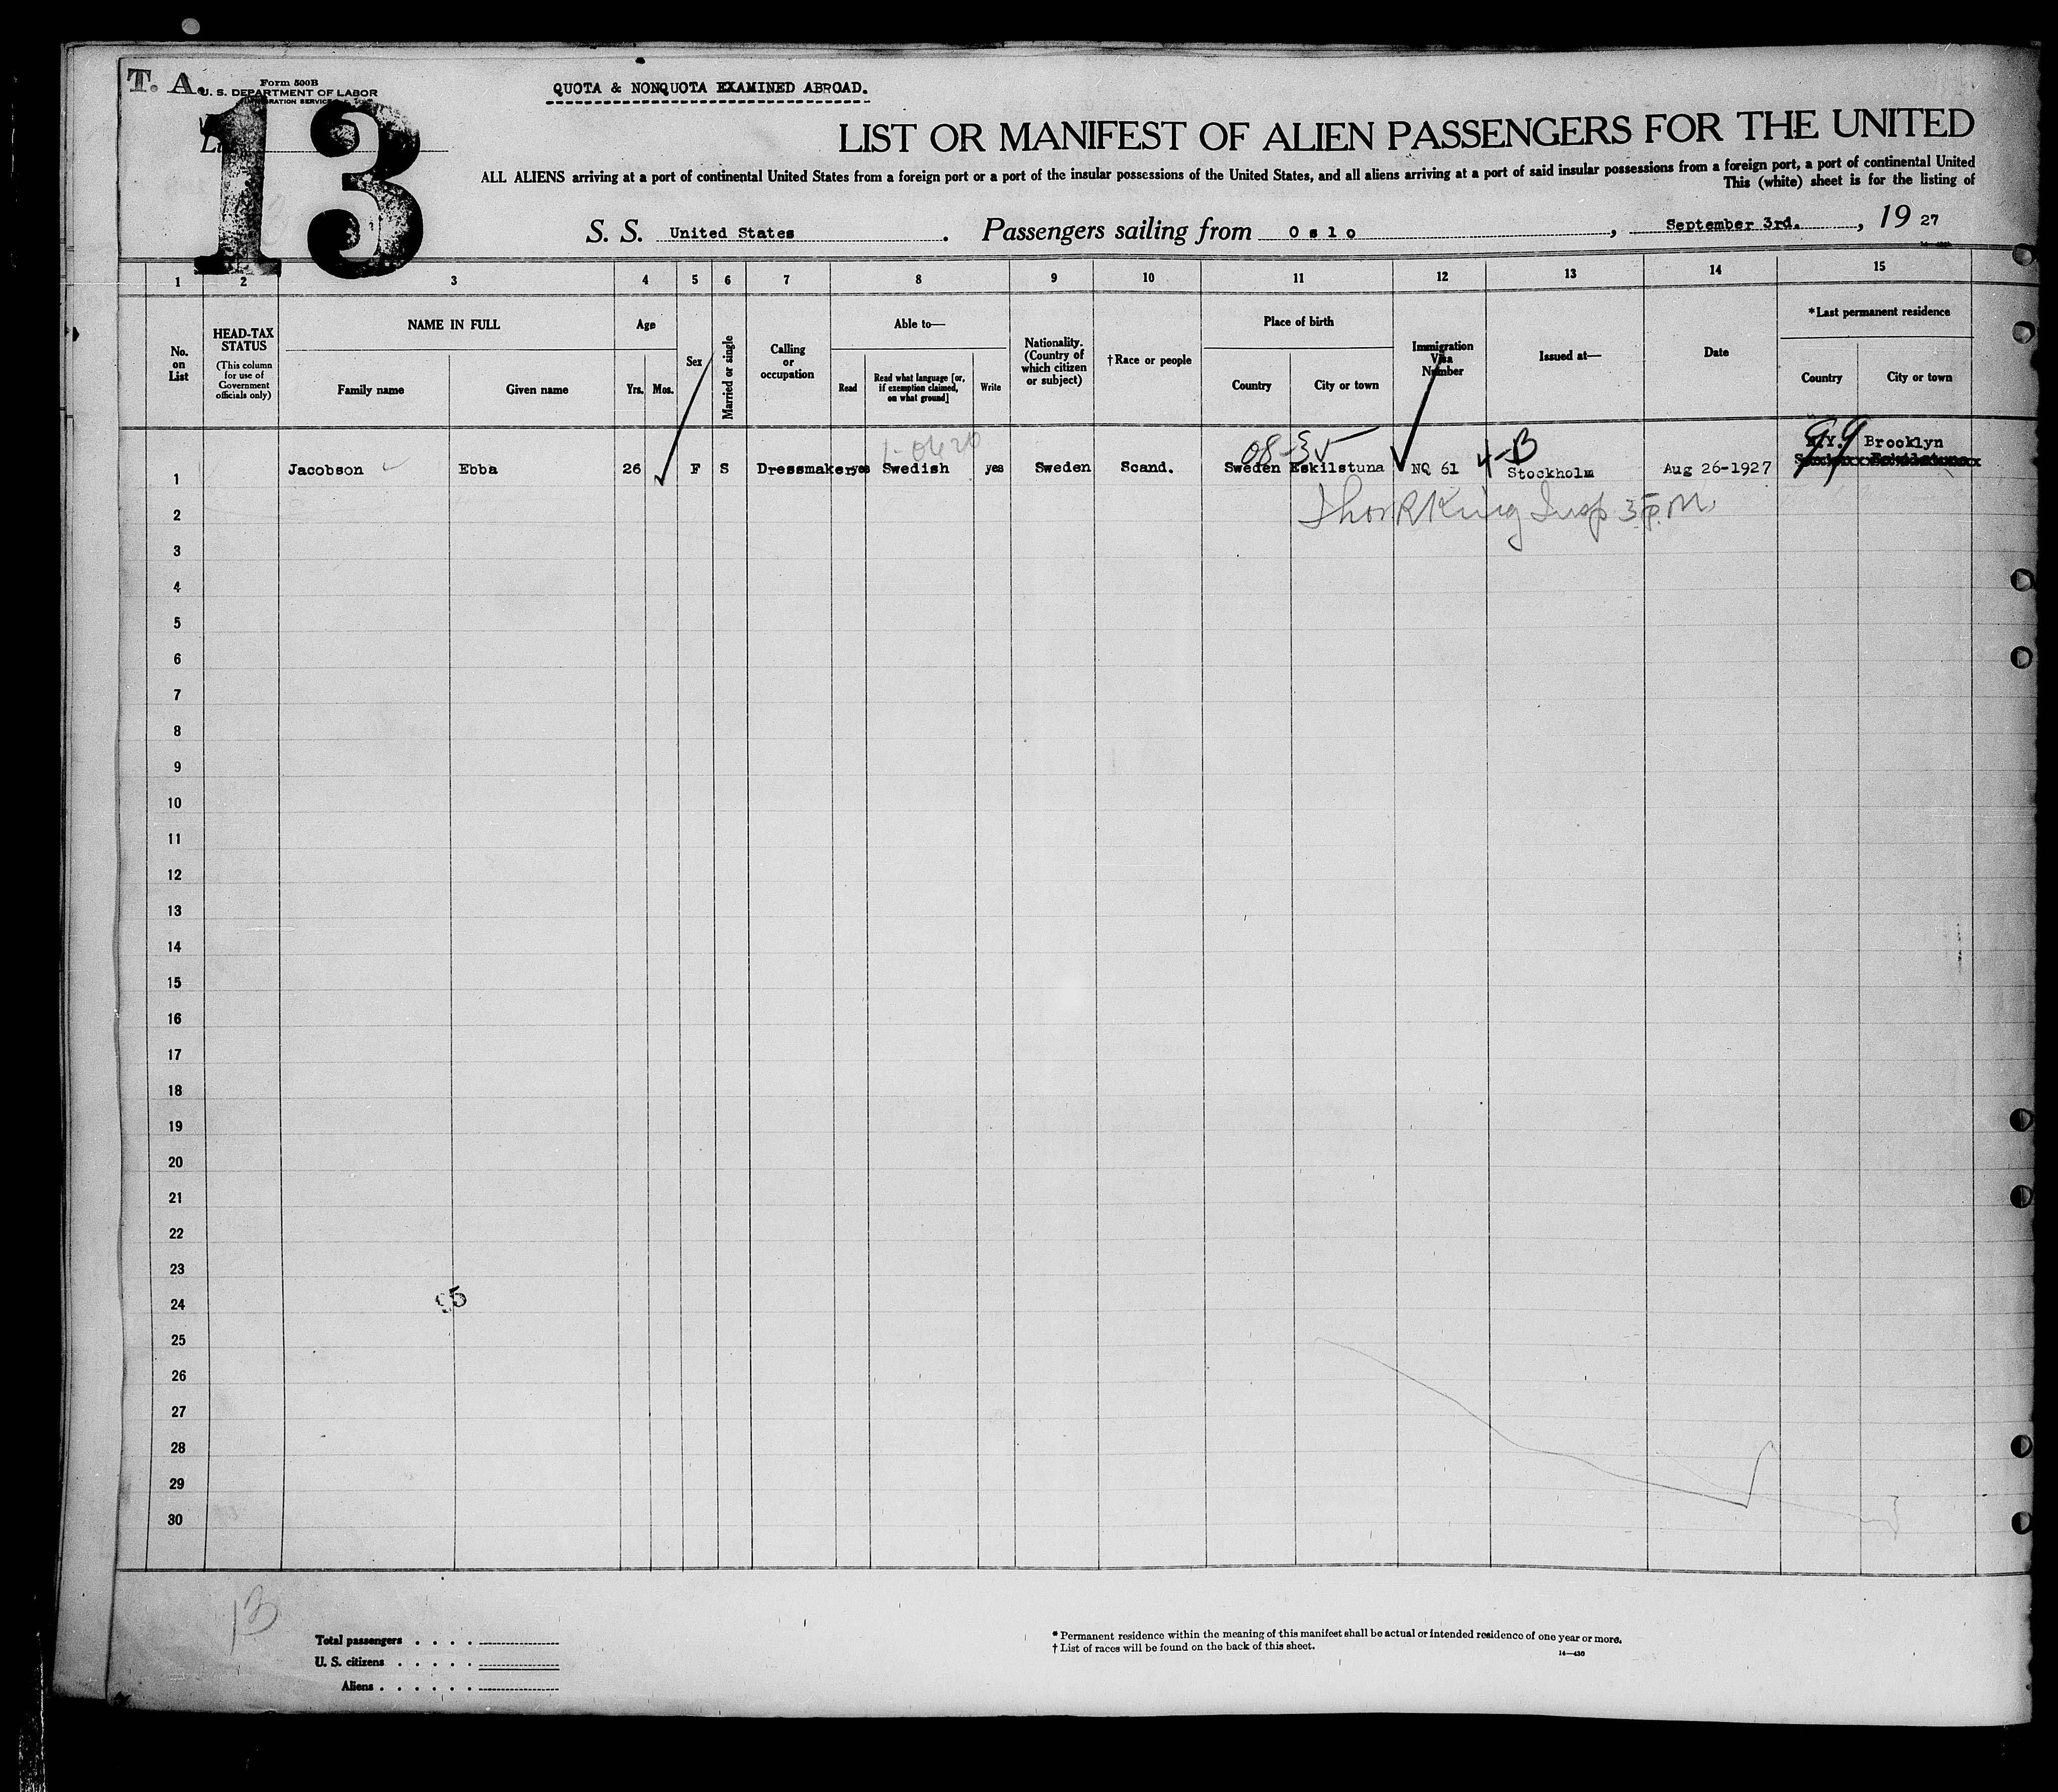 T. A.
Form 500B
U. S. DEPARTMENT OF LABOR
IMMIGRATION SERVICE
QUOTA & NONQUOTA EXAMINED ABROAD.
13
LIST OR MANIFEST OF ALIEN PASSENGERS FOR THE UNITED
ALL ALIENS arriving at a port of continental United States from a foreign port or a port of the insular possessions of the United States, and all aliens arriving at a port of said insular possessions from a foreign port, a port of continental United
This (white) sheet is for the listing of
S. S. United States. Passengers sailing from Oslo, September 3rd., 19 27
1 2 3 4 5 6 7 8 9 10 11 12 13 14 15
No. on List
HEAD-TAX STATUS
(This column for use of Government officials only)
NAME IN FULL
Family name Given name
Age
Yrs. Mos.
Sex
Married or single
Calling or occupation
Able to—
Read
Read what language [or, if exemption claimed, on what ground]
Write
Nationality. (Country of which citizen or subject)
†Race or people
Place of birth
Country City or town
Immigration Visa Number
Issued at—
Date
*Last permanent residence
Country City or town
08-35 4-B 99 N.Y. Brooklyn
1 Jacobson Ebba 26 F S Dressmaker yes Swedish yes Sweden Scand. Sweden Eskilstuna NQ 61 Stockholm Aug 26-1927
2 King Insp
3
4
5
6
7
8
9
10
11
12
13
14
15
16
17
18
19
20
21
22
23
24
25
26
27
28
29
30
13
Total passengers
U. S. citizens
Aliens
* Permanent residence within the meaning of this manifest shall be actual or intended residence of one year or more.
† List of races will be found on the back of this sheet.
14—430